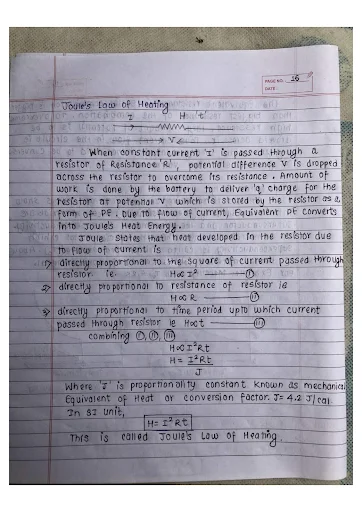 PAGE NO. 16
DATE
Joule's Law of Heating
I H 't'
V
When constant current 'I' is passed through a
resistor of Resistance 'R', potential difference V is dropped
across the resistor to overcome its resistance. Amount of
work is done by the battery to deliver 'q' charge for the
resistor at potential V which is stored by the resistor as a
form of PE. Due to flow of current, Equivalent PE converts
into Joule's Heat Energy.
Joule States that heat developed in the resistor due
to flow of current is
1) directly proportional to the square of current passed through
resistor. ie. H∝I² — (I)
2) directly proportional to resistance of resistor ie
H∝R — (II)
3) directly proportional to time period upto which current
passed through resistor ie H∝t — (III)
combining (I), (II), (III)
H∝I²Rt
H = I²Rt
J
Where 'J' is proportionality constant known as mechanical
Equivalent of Heat or conversion factor. J= 4.2 J/cal
In SI Unit,
H= I²Rt
This is called Joule's Law of Heating.